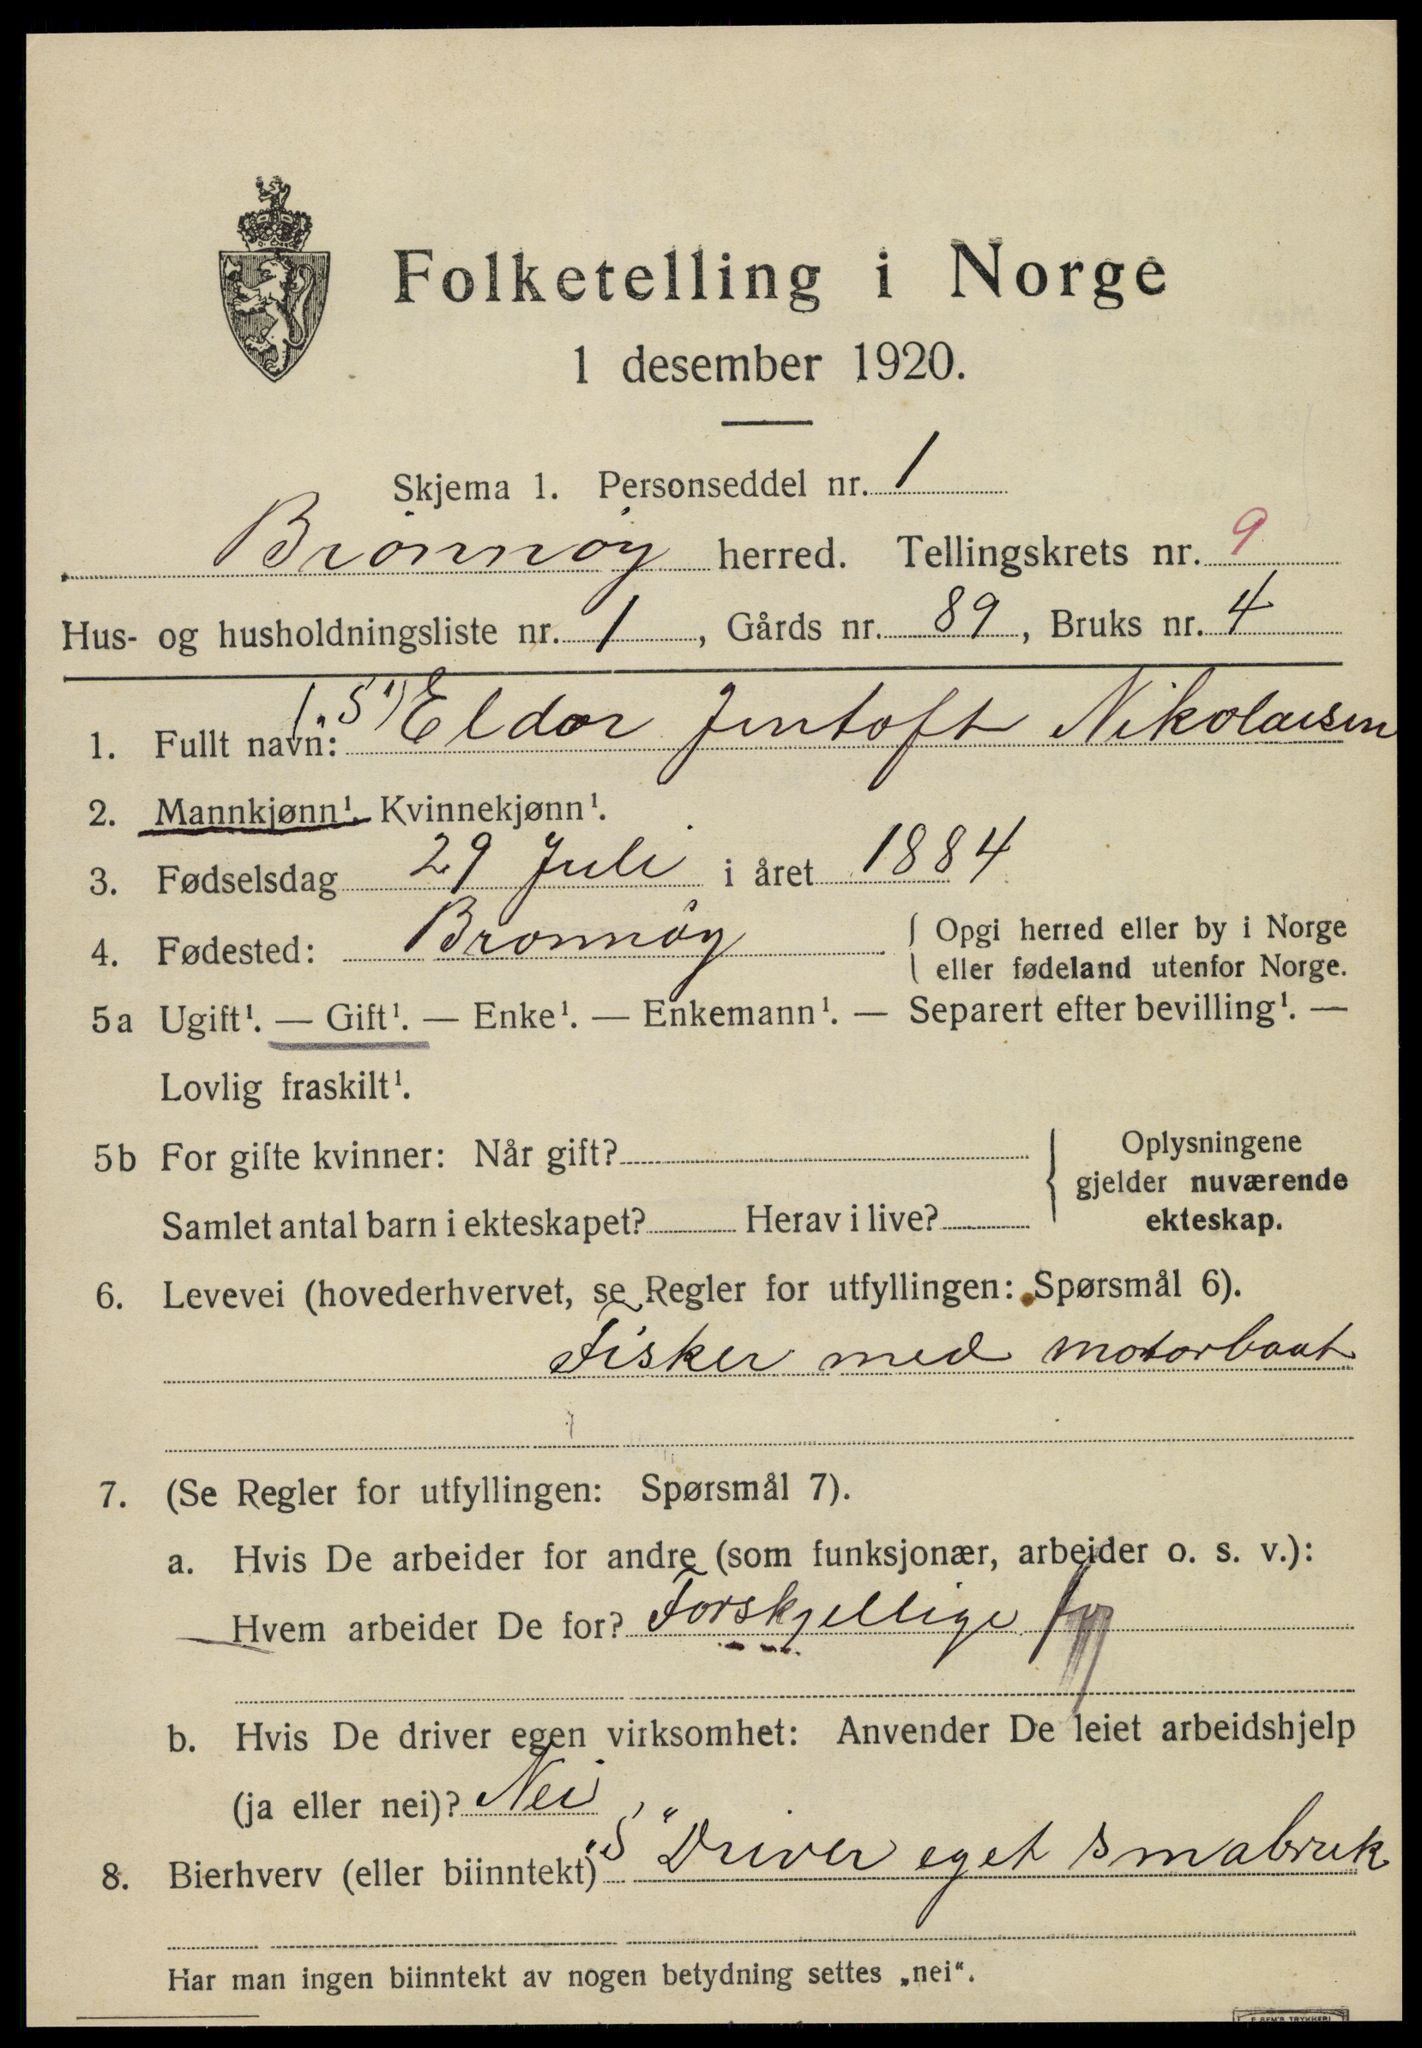 Folketelling i Norge
1 desember 1920.
Skjema 1. Personseddel nr. 1
Brönnöy herred. Tellingskrets nr. 9
Hus- og husholdningsliste nr. 1, Gårds nr. 89, Bruks nr. 4
1. Fullt navn: "S" Eldor Jentoft Nikolaisen
2. Mannkjønn¹. Kvinnekjønn¹.
3. Fødselsdag 29 Juli i året 1884
4. Fødested: Bronnöy { Opgi herred eller by i Norge
eller fødeland utenfor Norge.
5a Ugift¹. — Gift¹. — Enke¹. — Enkemann¹. — Separert efter bevilling¹. —
Lovlig fraskilt¹.
5b For gifte kvinner: Når gift? { Oplysningene
gjelder nuværende
Samlet antal barn i ekteskapet? Herav i live? ekteskap.
6. Levevei (hovederhvervet, se Regler for utfyllingen: Spørsmål 6).
Fisker med motorbaat
7. (Se Regler for utfyllingen: Spørsmål 7).
a. Hvis De arbeider for andre (som funksjonær, arbeider o. s. v.):
Hvem arbeider De for? Forskjellige
b. Hvis De driver egen virksomhet: Anvender De leiet arbeidshjelp
(ja eller nei)? Nei
8. Bierhverv (eller biinntekt) "S" Driver eget smabruk
Har man ingen biinntekt av nogen betydning settes „nei".